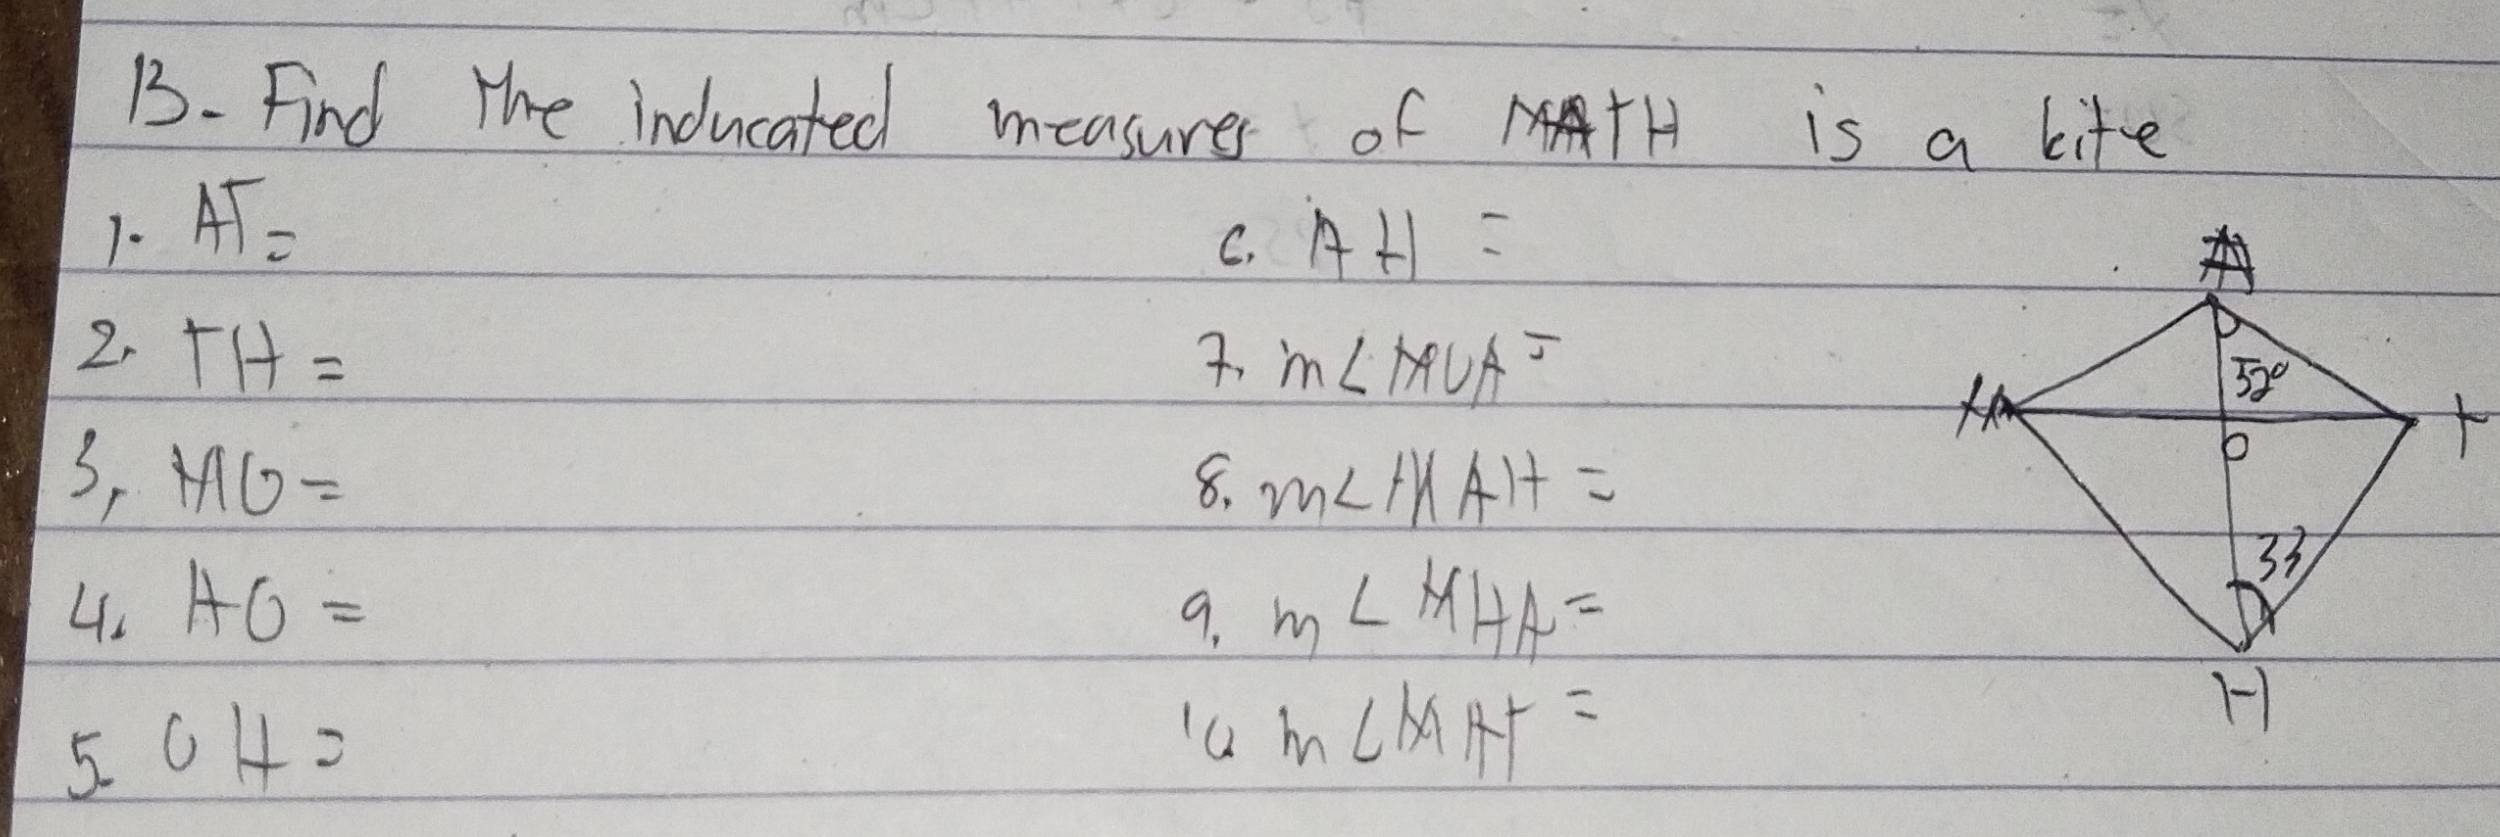 B- Find the inducated measures of MATH is a kite
1. AT =
2. TH =
3, MO =
4. AO =
5. OH =
6. AH =
7. m∠MOA =
8. m∠MAH =
9. m∠MHA =
10 m∠MAT =
A
52°
M
T
O
33
H